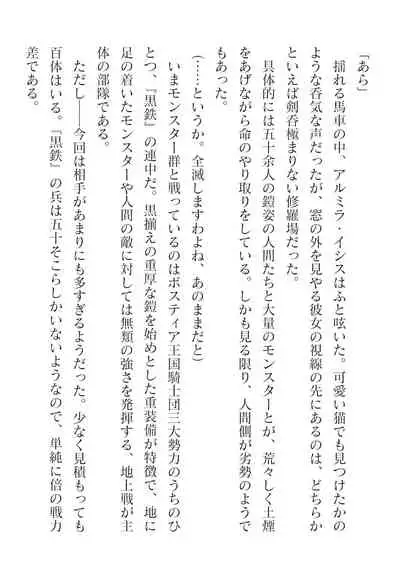 「あら」
　揺れる馬車の中、アルミラ・イシスはふと呟いた。可愛い猫でも見つけたかの
ような呑気な声だったが、窓の外を見やる彼女の視線の先にあるのは、どちらか
といえば剣呑極まりない修羅場だった。
　具体的には五十余人の鎧姿の人間たちと大量のモンスターとが、荒々しく土煙
をあげながら命のやり取りをしている。しかも見る限り、人間側が劣勢のようで
もあった。
（……というか。全滅しますわよね、あのままだと）
　いまモンスター群と戦っているのはボスティア王国騎士団三大勢力のうちのひ
とつ、『黒鉄』の連中だ。黒揃えの重厚な鎧を始めとした重装備が特徴で、地に
足の着いたモンスターや人間の敵に対しては無類の強さを発揮する、地上戦が主
体の部隊である。
　ただし――今回は相手があまりにも多すぎるようだった。少なく見積もっても
百体はいる。『黒鉄』の兵は五十そこらしかいないようなので、単純に倍の戦力
差である。